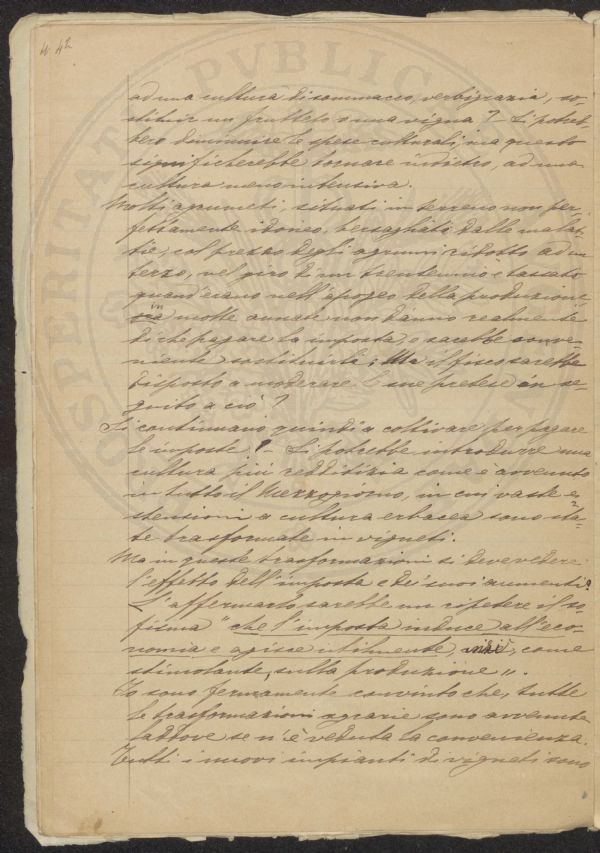 n. 42
ad una cultura di sommacco, verbigrazia, so-
stituir un frutteto o una vigna? Si potreb-
bero diminuire le spese culturali, ma questo
significherebbe tornare indietro, ad una
cultura meno intensiva.
Molti agrumeti, situati in terreno non per-
fettamente idoneo, bersagliati dalle malat-
tie, col prezzo degli agrumi ridotto ad un
terzo, nel giro di un trentennio e tassato
quand'erano nell'apogeo della produzione
in molte annate non danno realmente
di che pagare la imposta, e sarebbe conve-
niente sostituirli; Ma il fisco sarebbe
disposto a moderare le sue pretese in se-
guito a ciò?
Si continuano quindi a coltivare per pagare
le imposte? - Si potrebbe introdurre una
cultura più redditizia come è avvenuto
in tutto il Mezzogiorno, in cui vaste e-
stensioni a cultura erbacea sono sta-
te trasformate in vigneti.
Ma in queste trasformazioni si deve vedere
l'effetto dell'imposta e de' suoi aumenti?
L'affermarlo sarebbe un ripetere il so-
fisma "che l'imposta induce all'eco-
nomia e agisce utilmente, come
stimolante, sulla produzione".
Io sono fermamente convinto che, tutte
le trasformazioni agrarie sono avvenute
laddove se n'è veduta la convenienza.
Tutti i nuovi impianti di vigneti sono
PROSPERITATI PVBLICAE